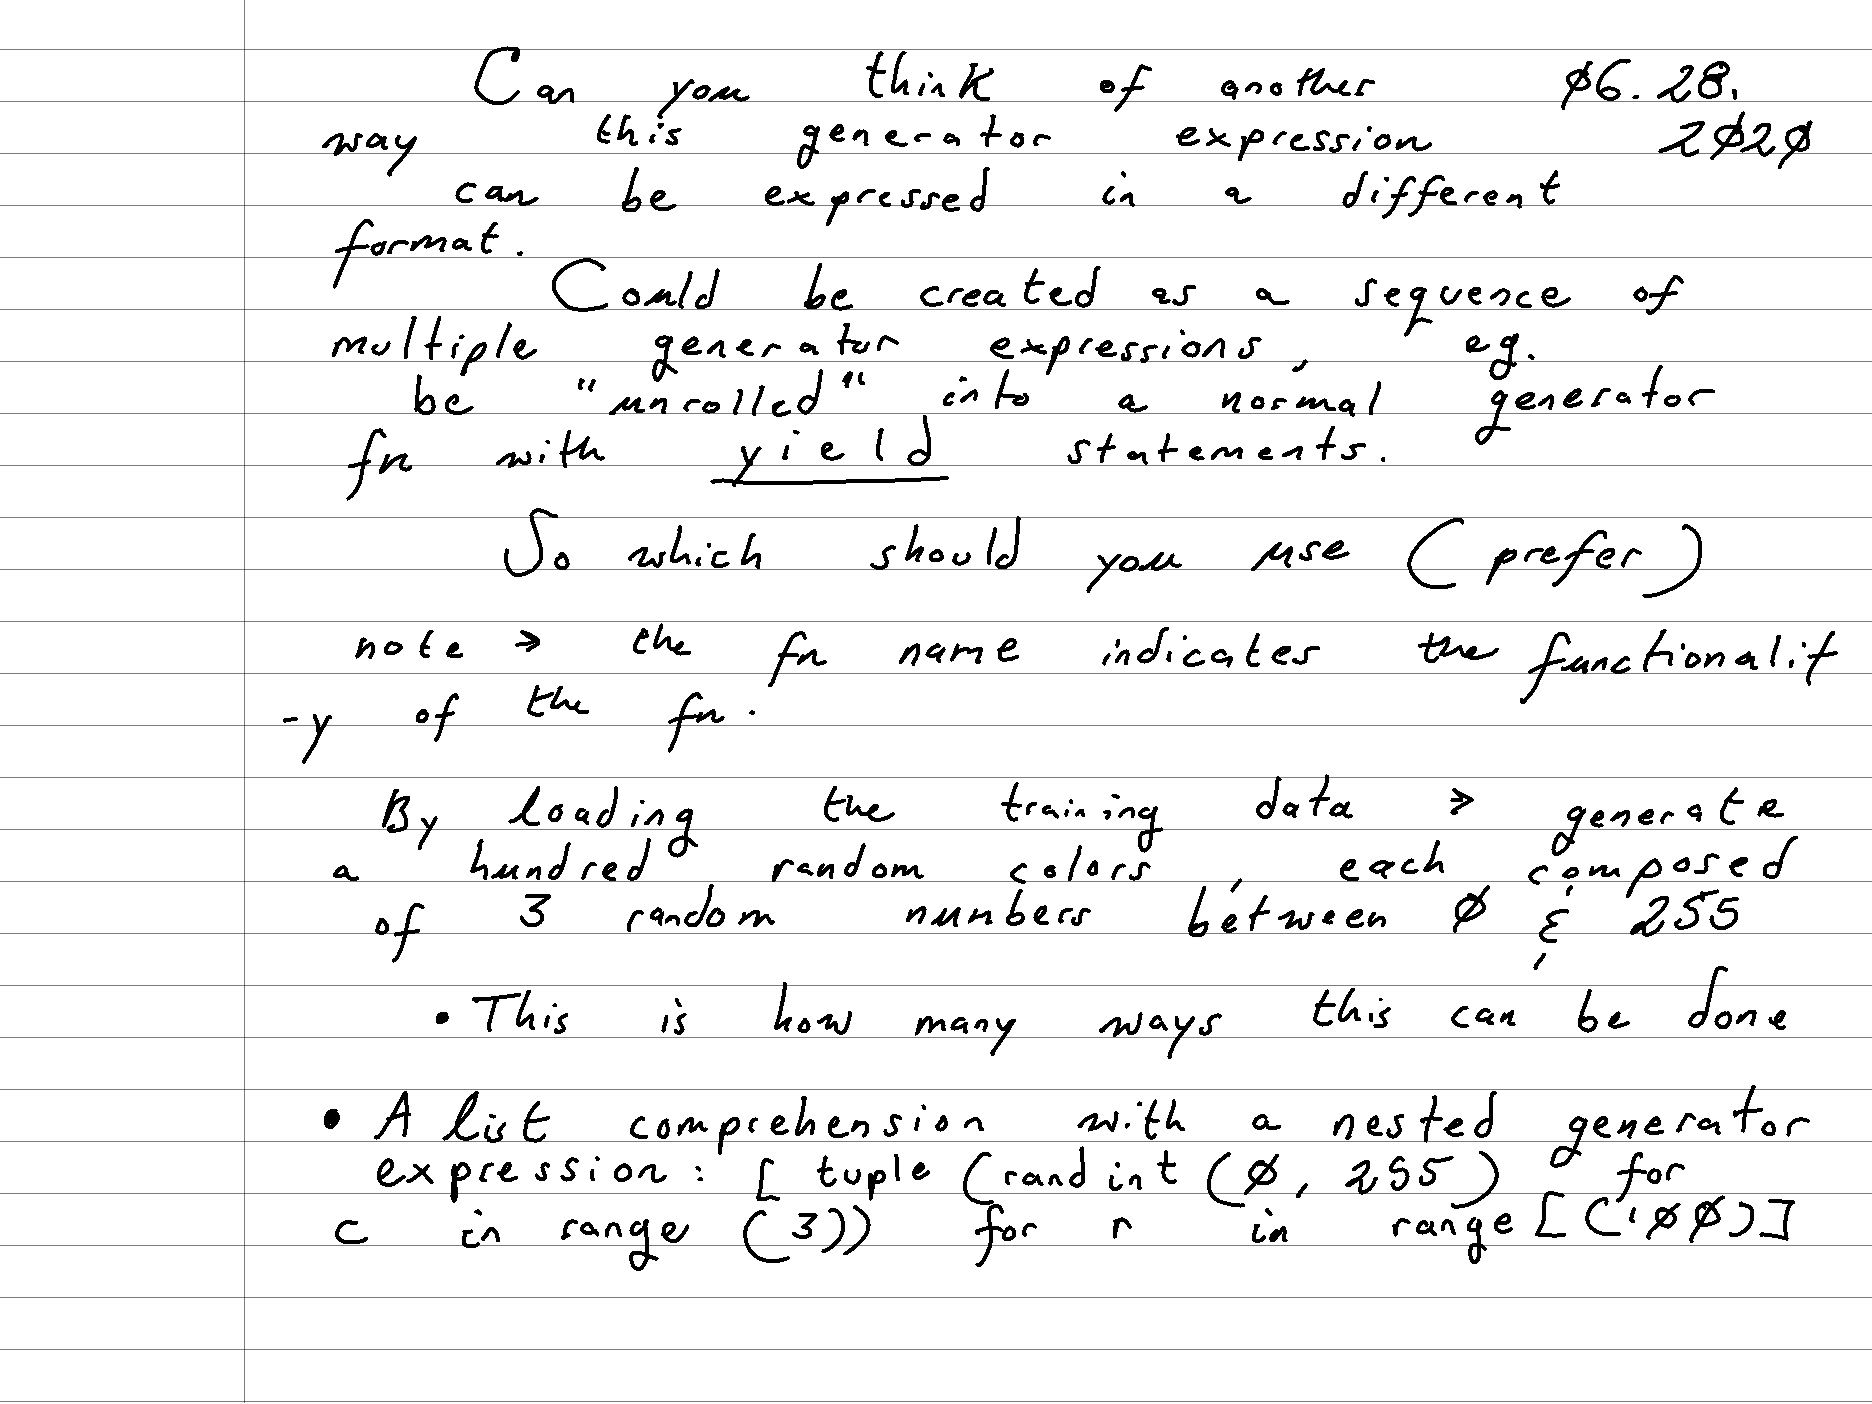 Can you think of another 06.28.
way this generator expression 2020
can be expressed in a different
format.
Could be created as a sequence of
multiple generator expressions, eg.
be "unrolled" into a normal generator
fn with yield statements.
So which should you use (prefer)
note → the fn name indicates the functionalit
-y of the fn.
By loading the training data → generate
a hundred random colors, each composed
of 3 random numbers between 0 & 255
• This is how many ways this can be done
• A list comprehension with a nested generator
expression: [ tuple (randint (0, 255) for
c in range (3)) for r in range [(100)]